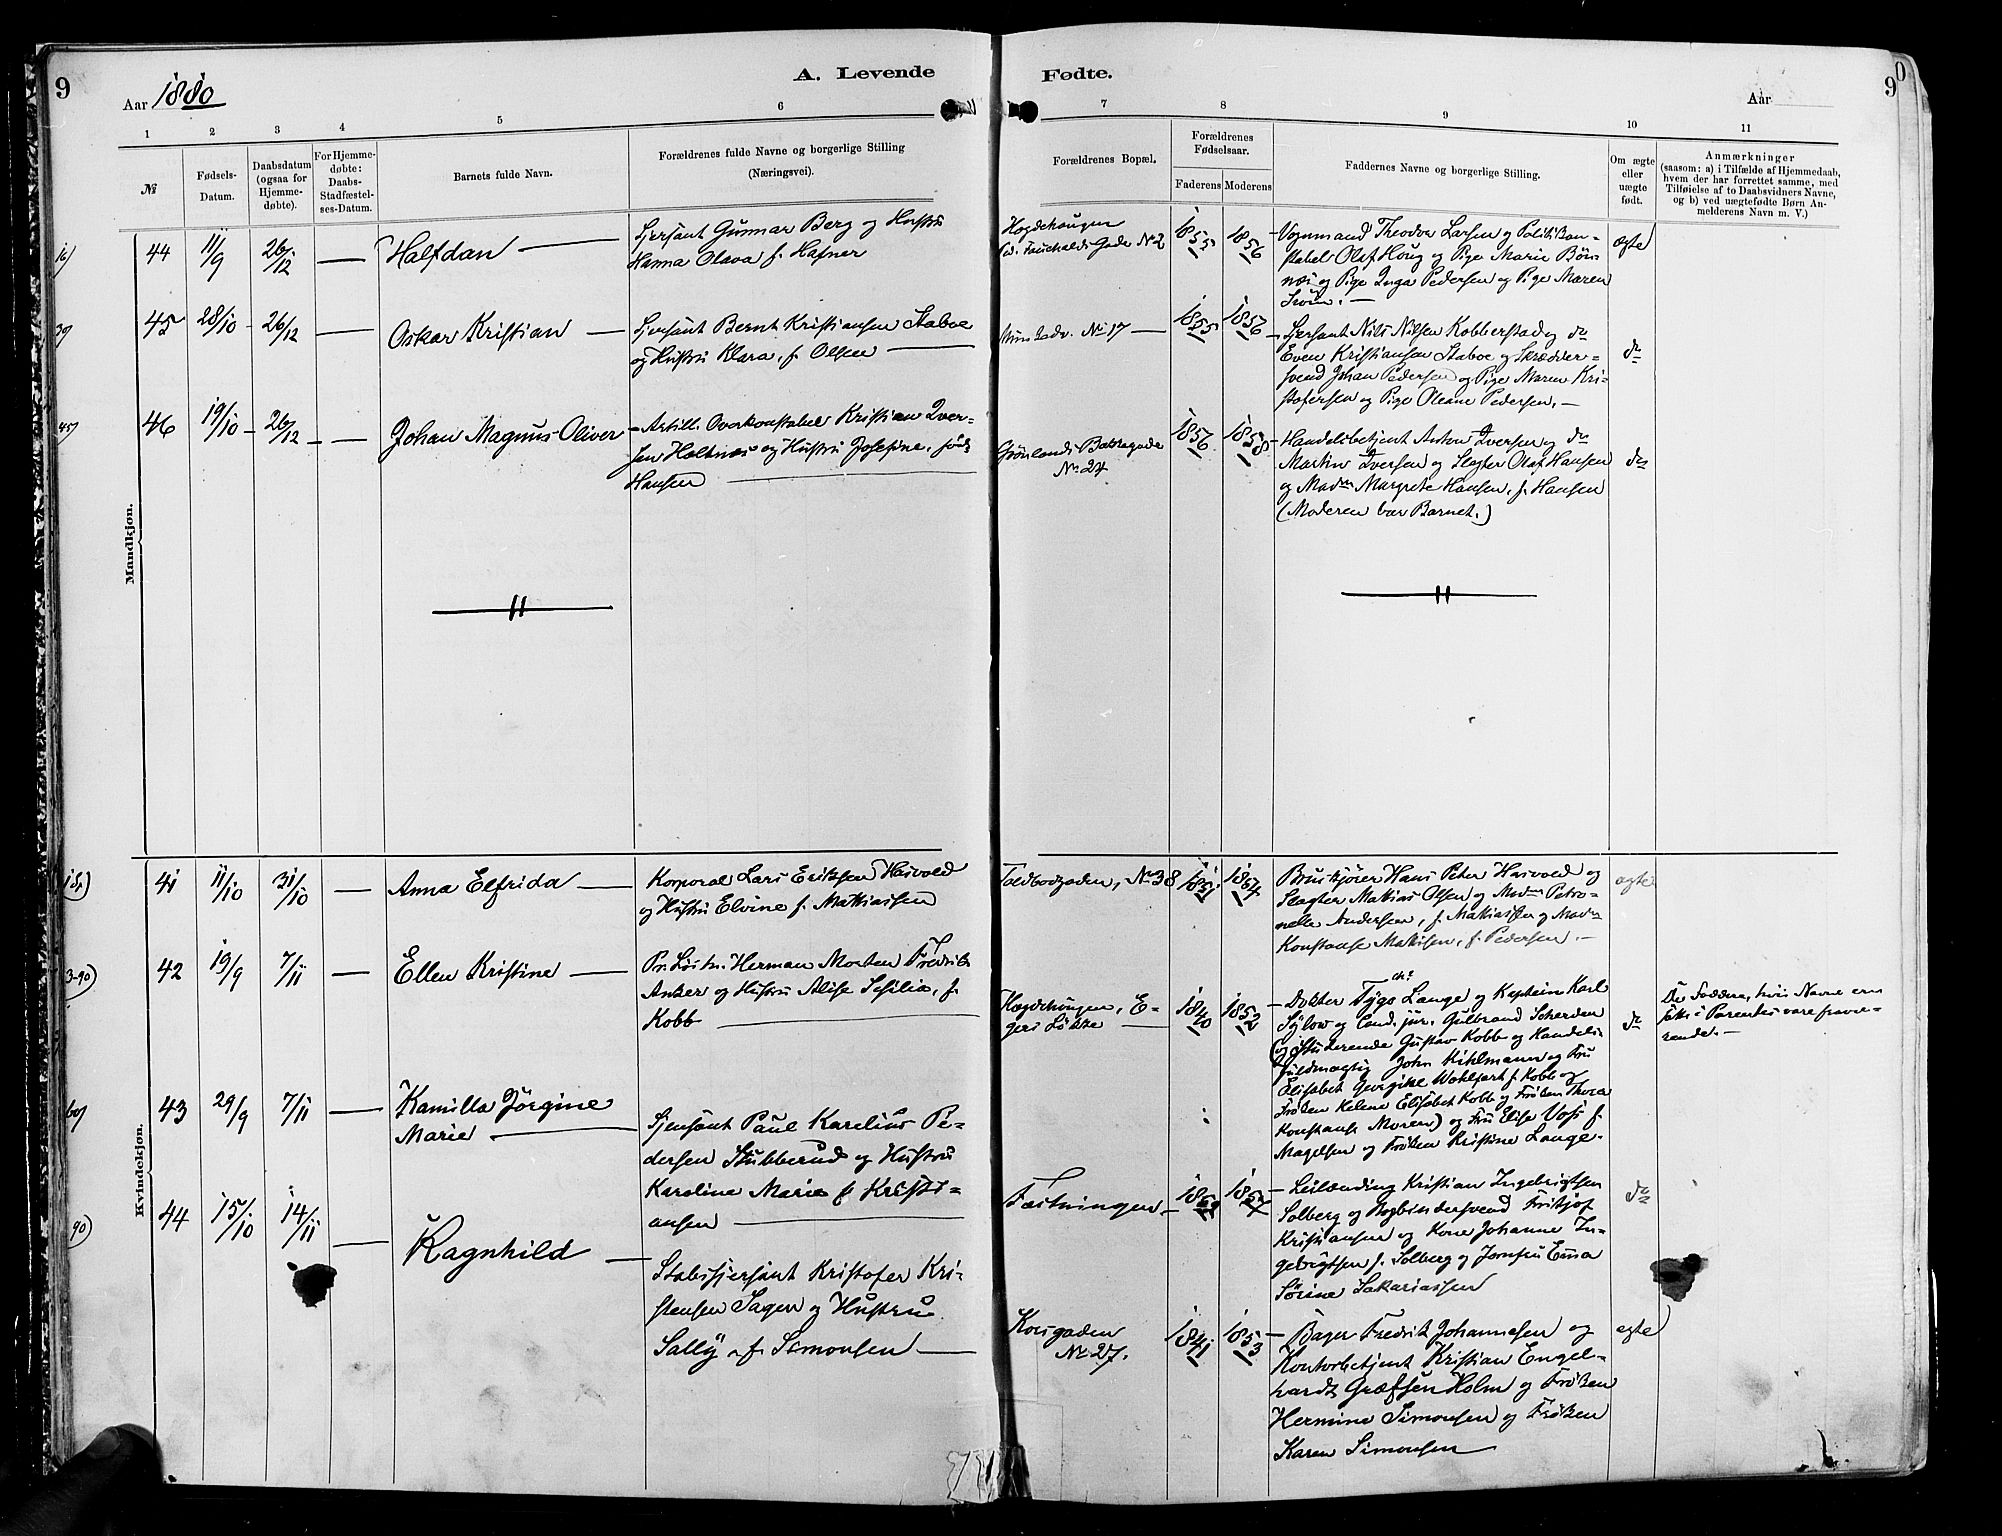 9
A. Levende Fødte.
9
Aar 1880
Aar
1 2 3 4 5 6 7 8 9 10 11
№
Fødsels-
Datum.
Daabsdatum
(ogsaa for
Hjemme-
døbte).
For Hjemme-
døbte:
Daabs-
Stadfæstel-
ses-Datum.
Barnets fulde Navn.
Forældrenes fulde Navne og borgerlige Stilling
(Næringsvei).
Forældrenes Bopæl.
Forældrenes
Fødselsaar.
Faderens Moderens
Faddernes Navne og borgerlige Stilling.
Om ægte
eller
uægte
født.
Anmærkninger
(saasom: a) i Tilfælde af Hjemmedaab,
hvem der har forrettet samme, med
Tilføielse af to Daabsvidners Navne,
og b) ved uægtefødte Børn An-
melderens Navn m. V.)
Mandkjøn.
44 11/9 26/12 — Halfdan —
Sjersant Gunnar Berg og Hustru
Hanna Olava f. Hafner
Hægdehaugen
Fauchalds Gade № 2
1855 1856
Vognmand Theodor Larsen og Politikon-
stabel Olaf Houg og Pige Marie Børs-
næs og Pige Inga Pedersen og Pige Maren
ægte
45 28/10 - 26/12 — Oskar Kristian —
Sjersant Bernt Kristiansen Staboe
og Hustru Klara, f. Olsen —
№ 17 —
1855 1856
Sjersant Nils Nilsen Kobberstad og do
Even Kristiansen Staboe og Skrædder-
svend Johan Pedersen og Pige Maren Kri-
stofersen og Pige Oleane Pedersen. —
do
46 19/10 - 26/12 - — Johan Magnus Oliver
Artill. Overkonstabel Kristian Iver-
sen Holtnæs og Hustru Josefine, født
Hansen —
Grønlands Bakkegade
№ 24
1856 1858
Handelsbetjent Anton Iversen og do
Martin Iversen og Slagter Olaf Hansen
og Madm Margrete Hansen, f. Hansen
(Moderen bar Barnet.)
do
Kvindekjøn.
41 11/10 31/10 — Anna Elfrida —
Korporal Lars Eriksen Hasvold
og Hustru Elvine f. Mathiassen
Toldbodgaden, № 38
1851 1854
Bruskjører Hans Peter Hasvold og
Slagter Mathias Olsen og Madm Petro-
nelle Andersen, f. Mathiassen og Madm
Konstanse Mathisen, f. Pedersen. —
ægte
42 19/9 7/11 — Ellen Kristine —
Pr. Løitn. Herman Morten Fredrik
Anker og Hustru Alise Sesilia, f.
Kobb —
Hægdehaugen, E-
gers Løkke —
1840 1852
Dokter Tygo Lange og Kaptein Karl
Sylow og Cand. jur. Gulbrand Scherden
(og Studerende Gustav Kobb og Handels-
fuldmægtig John Kihlmann og Fru
Elisabet Georgine Wohlfart f. Kobb og
Frøken Helene Elisabet Kobb og Frøken Thora
Konstanse Moren) og Fru Elise Voss f.
Magelsen og Frøken Kristine Lange.
do
De Faddere, hvis Navne ere
satte i Parentes vare fravæ-
rende. —
43 29/9 7/11 — Kamilla Jørgine
Marie —
Sjersant Paul Karelius Pe-
dersen Stubberud og Hustru
Karoline Marie f. Kristi-
ansen —
Fæstningen. —
Leilænding Kristian Ingebrigtsen
Solberg og Bogbindersvend Fritjof
Kristiansen og Kone Johanne In-
gebrigtsen f. Solberg og Jomfru Emma
Sørine Sakariassen
do
44 15/10 14/11 — Ragnhild —
Stabssjersant Kristofer Kri-
stensen Sagen og Hustru
Sally, f. Simonsen —
Korsgaden
№ 27.
1841 1853
Bager Fredrik Johannesen og
Kontorbetjent Kristian Engel-
hardt Græfsen Holm og Frøken
Hermine Simonsen og Frøken
Karen Simonsen
ægte